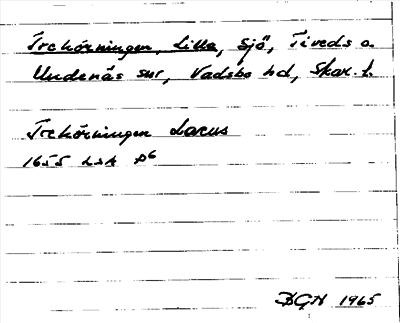 Trehörningen, Lilla, Sjö, Tiveds o.
Undenäs snr, Vadsbo hd, Skar. l.
Trehörningen Lacus
1655 LSA P6
BGN 1965